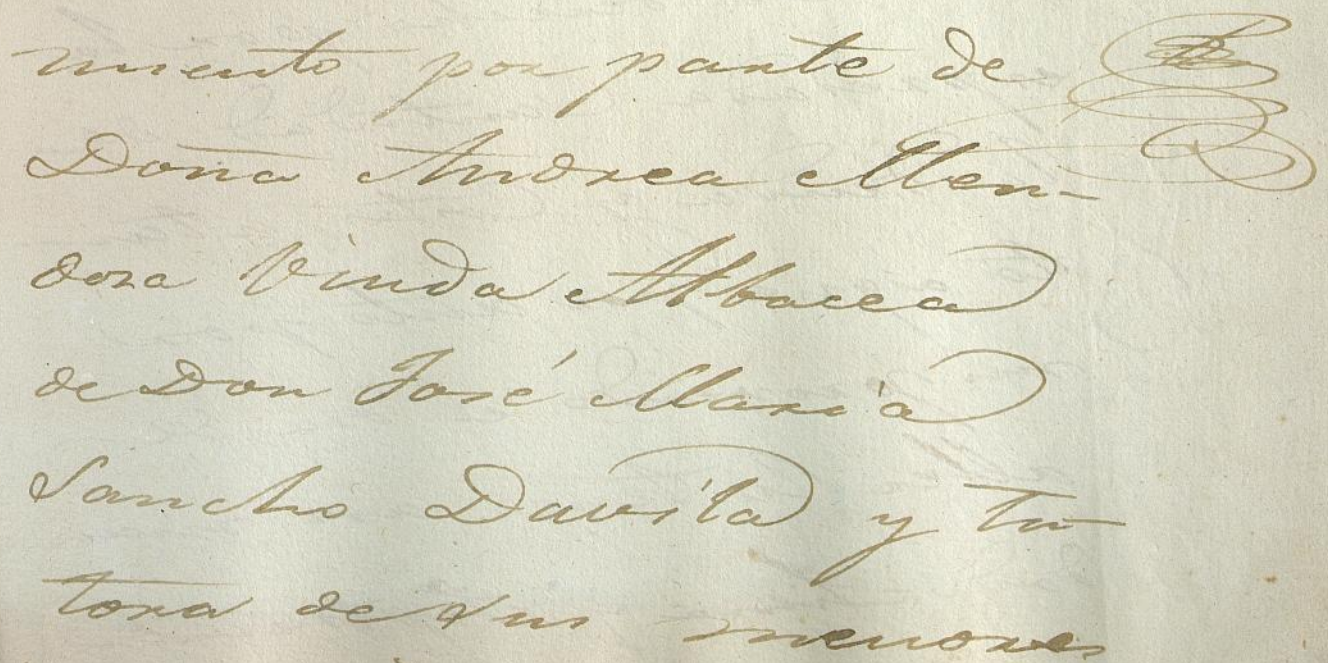 miento por parte de
Doña Andrea Men-
doza Viuda Albacea
de Don José María
Sancho Davila y tu-
tora de sus menores